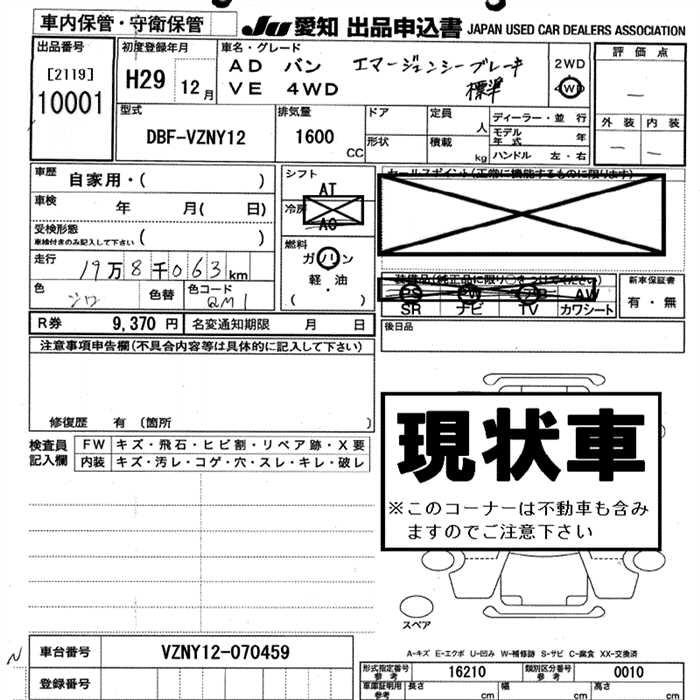 車内保管・守衛保管
JU 愛知 出品申込書 JAPAN USED CAR DEALERS ASSOCIATION
出品番号
[2119]
10001
初度登録年月
H29 12月
車名・グレード
AD バン エマージェンシーブレーキ
VE 4WD 標準
2WD
4WD
評価点
—
外装 内装
— —
型式
DBF-VZNY12
排気量
1600 CC
ドア
形状
定員 人
積載 kg
ディーラー・並行
モデル年式 年
ハンドル 左・右
車歴 自家用・( )
車検 年 月( 日)
受検形態
車検付きのみ記入して下さい ( )
走行 19万8千063km
色 シロ 色替 色コード QM1
シフト
AT
冷房
AC
燃料
ガソリン
軽・油
( )
セールスポイント(正常に機能するものに限ります)
装備品(純正品に限り○をつけて下さい)
AW
SR ナビ TV カワシート
新車保証書
有・無
R券 9,370 円 名変通知期限 月 日
後日品
注意事項申告欄(不具合内容等は具体的に記入して下さい)
修復歴 有 (箇所 )
検査員記入欄
FW キズ・飛石・ヒビ割・リペア跡・X要
内装 キズ・汚レ・コゲ・穴・スレ・キレ・破レ
現状車
※このコーナーは不動車も含み
ますのでご注意下さい
スペア
A-キズ E-エクボ U-凹み W-補修跡 S-サビ C-腐食 XX-交換済
N
車台番号 VZNY12-070459
登録番号
型式指定番号 参考 16210 類別区分番号 参考 0010
車庫証明用 参考 長さ cm 幅 cm 高さ cm